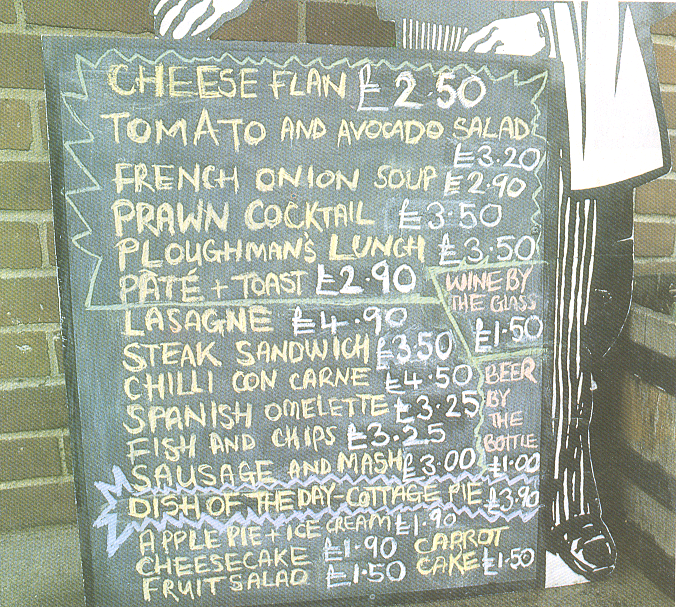 CHEESE FLAN £2.50
TOMATO AND AVOCADO SALAD
£3.20
FRENCH ONION SOUP £2.90
PRAWN COCKTAIL £3.50
PLOUGHMAN'S LUNCH £3.50
PÂTÉ + TOAST £2.90
WINE BY
THE GLASS
£1.50
LASAGNE £4.90
STEAK SANDWICH £3.50
CHILLI CON CARNE £4.50
SPANISH OMELETTE £3.25
FISH AND CHIPS £3.25
SAUSAGE AND MASH £3.00
BEER
BY
THE
BOTTLE
£1.00
DISH OF THE DAY-COTTAGE PIE £3.90
APPLE PIE + ICE CREAM £1.90
CHEESECAKE £1.90
FRUIT SALAD £1.50
CARROT
CAKE £1.50